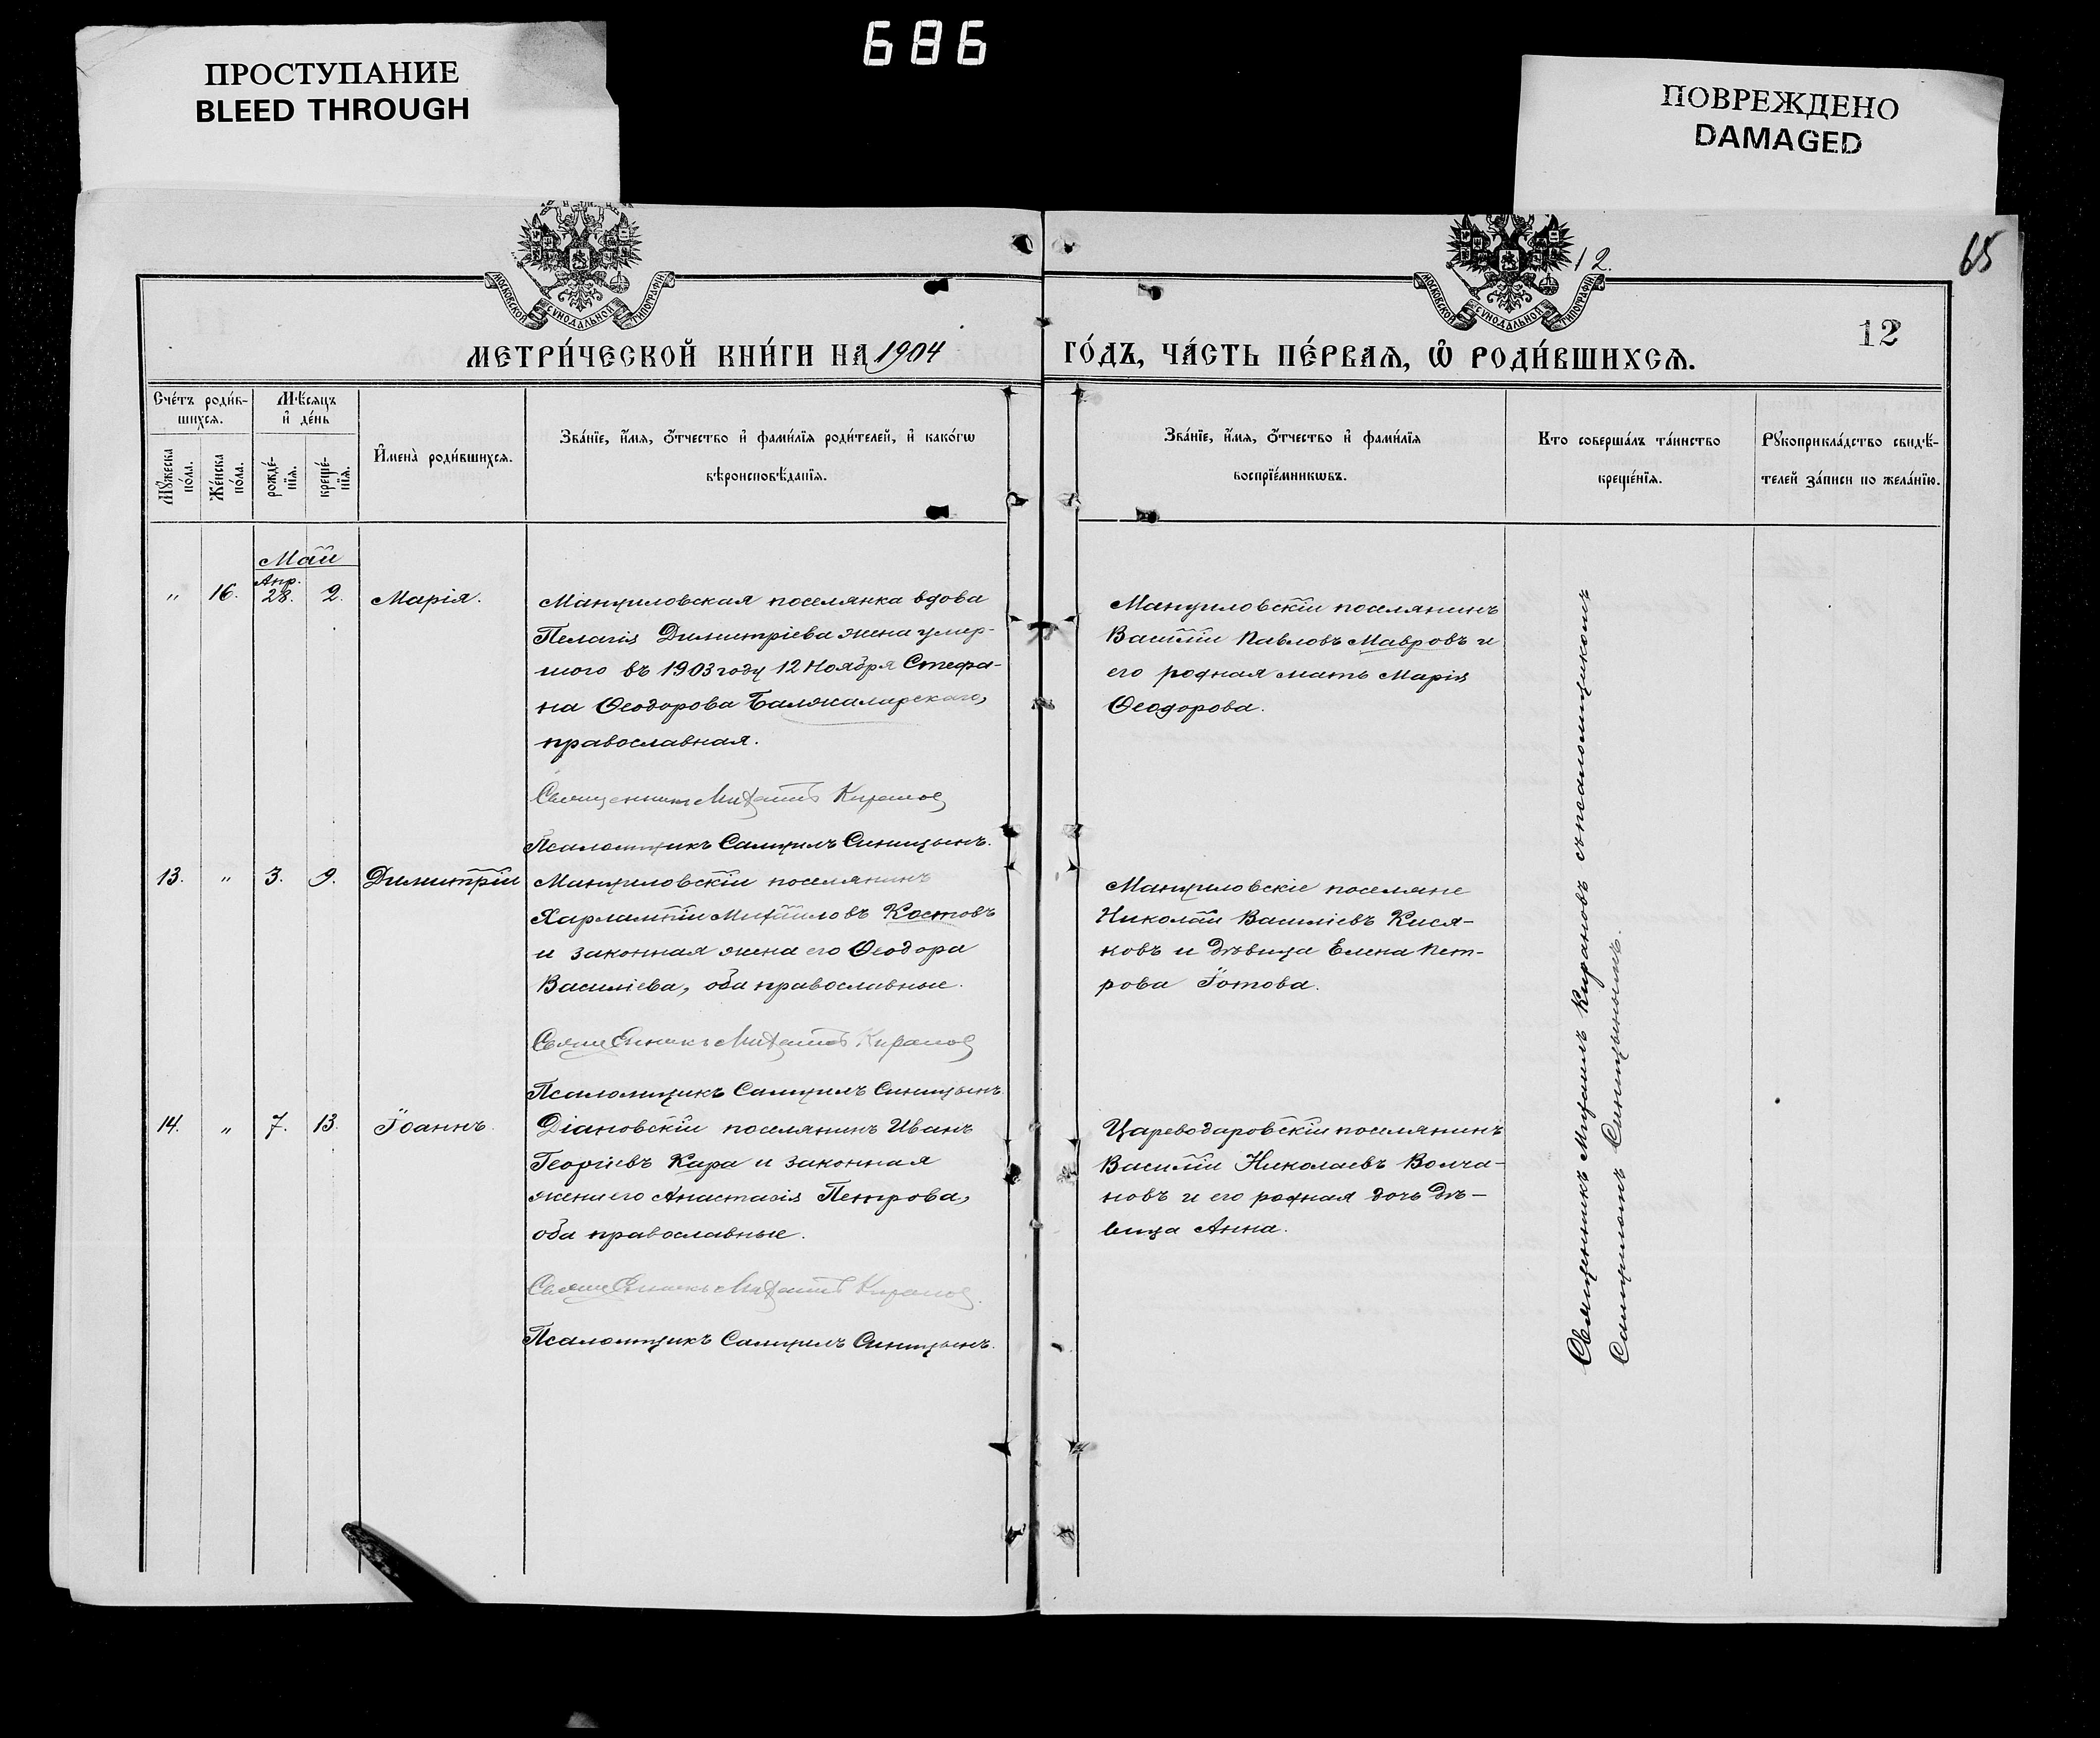 686
ПРОСТУПАНИЕ
BLEED THROUGH
ПОВРЕЖДЕНО
DAMAGED
65
12.
12
МОСКОВСКОЙ СУНОДАЛЬНОЙ ТИПОГРАФІИ
МОСКОВСКОЙ СУНОДАЛЬНОЙ ТИПОГРАФІИ
МЕТРИ́ЧЕСКОЙ КНИ́ГИ НА 1904
ГО́ДЪ, ЧА́СТЬ ПЕ́РВАѦ, Ѽ РОДИ́ВШИХСѦ.
Сче́тъ роди́в-
шихсѧ.
Мꙋ́жеска по́ла.
Же́нска по́ла.
Мѣ́сѧцъ
и҆ де́нь
рожде́-
нїѧ.
креще́-
нїѧ.
И҆мена̀ роди́вшихсѧ.
Зва́нїе, и҆́мѧ, ѻ҆́тчество и҆ фами́лїѧ роди́телей, и҆ како́гѡ
вѣроисповѣ́данїѧ.
Зва́нїе, и҆́мѧ, ѻ҆́тчество и҆ фами́лїѧ
воспрїе́мникѡвъ.
Кто соверша́лъ та́инство
креще́нїѧ.
Рꙋкоприкла́дство свидѣ́-
телей за́писи по жела́нїю.
Май
" 16. Апр. 28. 2. Марія.
Мануиловская поселянка вдова
Пелагія Димитріева жена умер-
шого въ 1903 году 12 Ноября Стефа-
на Ѳеодорова Балжаларскаго,
православная.
Священникъ Михаилъ Кирановъ
Псаломщикъ Самуилъ Синицынъ.
Мануиловскій поселянинъ
Василій Павловъ Мавровъ и
его родная мать Марія
Ѳеодорова.
13. " 3. 9. Димитрій
Мануиловскій поселянинъ
Харлампій Михайловъ Костовъ
и законная жена его Ѳеодора
Василіева, оба православные.
Священникъ Михаилъ Кирановъ
Псаломщикъ Самуилъ Синицынъ
Мануиловскіе поселяне
Николай Василіевъ Кися-
ковъ и дѣвица Елена Пет-
рова Іотова.
14. " 7. 13. Іоаннъ.
Діановскій поселянинъ Иванъ
Георгіевъ Кара и законная
жена его Анастасія Петрова,
оба православные.
Священникъ Михаилъ Кирановъ.
Псаломщикъ Самуилъ Синицынъ.
Цареводаровскій поселянинъ
Василій Николаевъ Волча-
новъ и его родная дочь дѣ-
вица Анна.
Священникъ Михаилъ Кирановъ съ псаломщикомъ
Самуиломъ Синицынымъ.